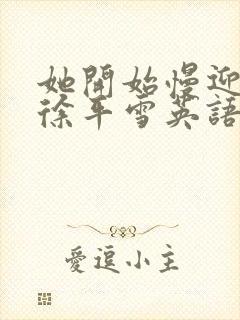 她開始慢迎
徐平雪英語
愛逗小主